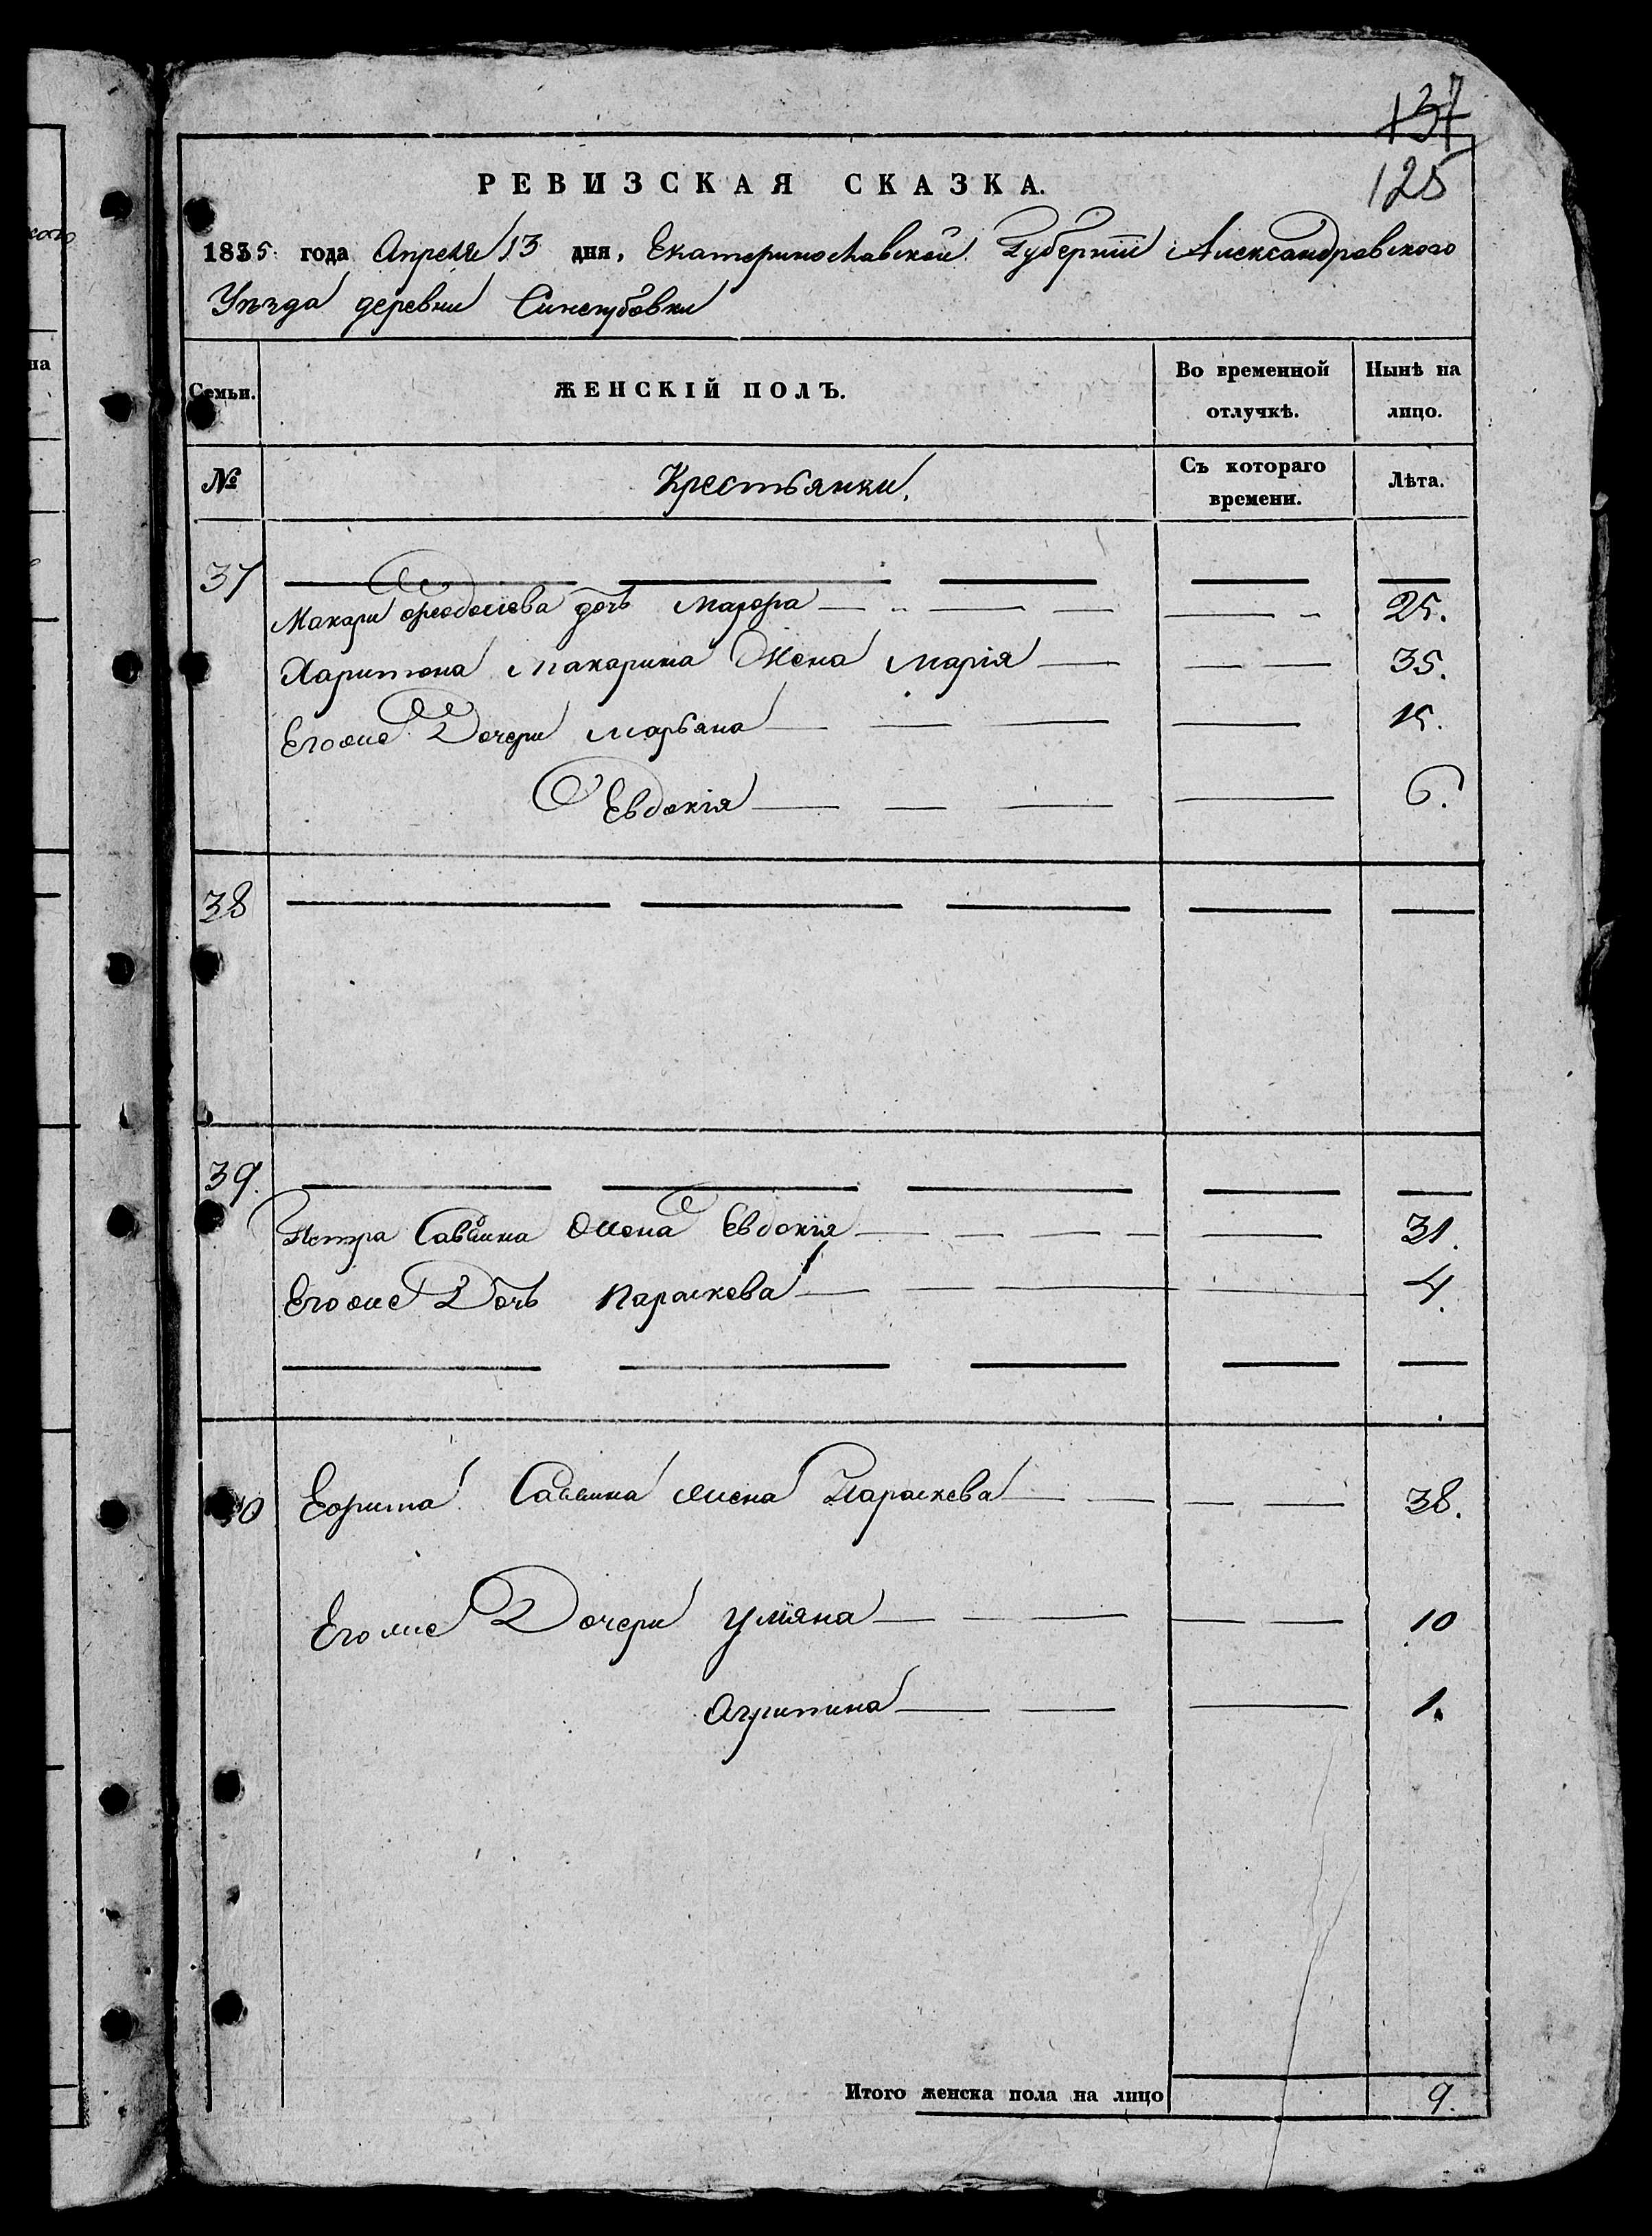 137
125
РЕВИЗСКАЯ СКАЗКА.
1835 года Апреля 13 дня, Екатеринославской Губернiи Александровского
Уѣзда деревни Синегубовки
Семьи.
ЖЕНСКІЙ ПОЛЪ.
Во временной отлучкѣ.
Нынѣ на лицо.
№
Крестьянки.
Съ котораго времени.
Лѣта.
37
Макари Феодосіева дочь Марфа 25.
Харитона Макарина Жена Марія 35.
Егоже Дочери Марьяна 15.
Евдокія 6.
38
39.
Петра Саввина Жена Евдокія 31.
Егоже Дочь Параскева 4.
0 Саввина жена Параскева 38.
Егоже Дочери Уліяна 10
Агрипина 1.
Итого женска пола на лицо 9.